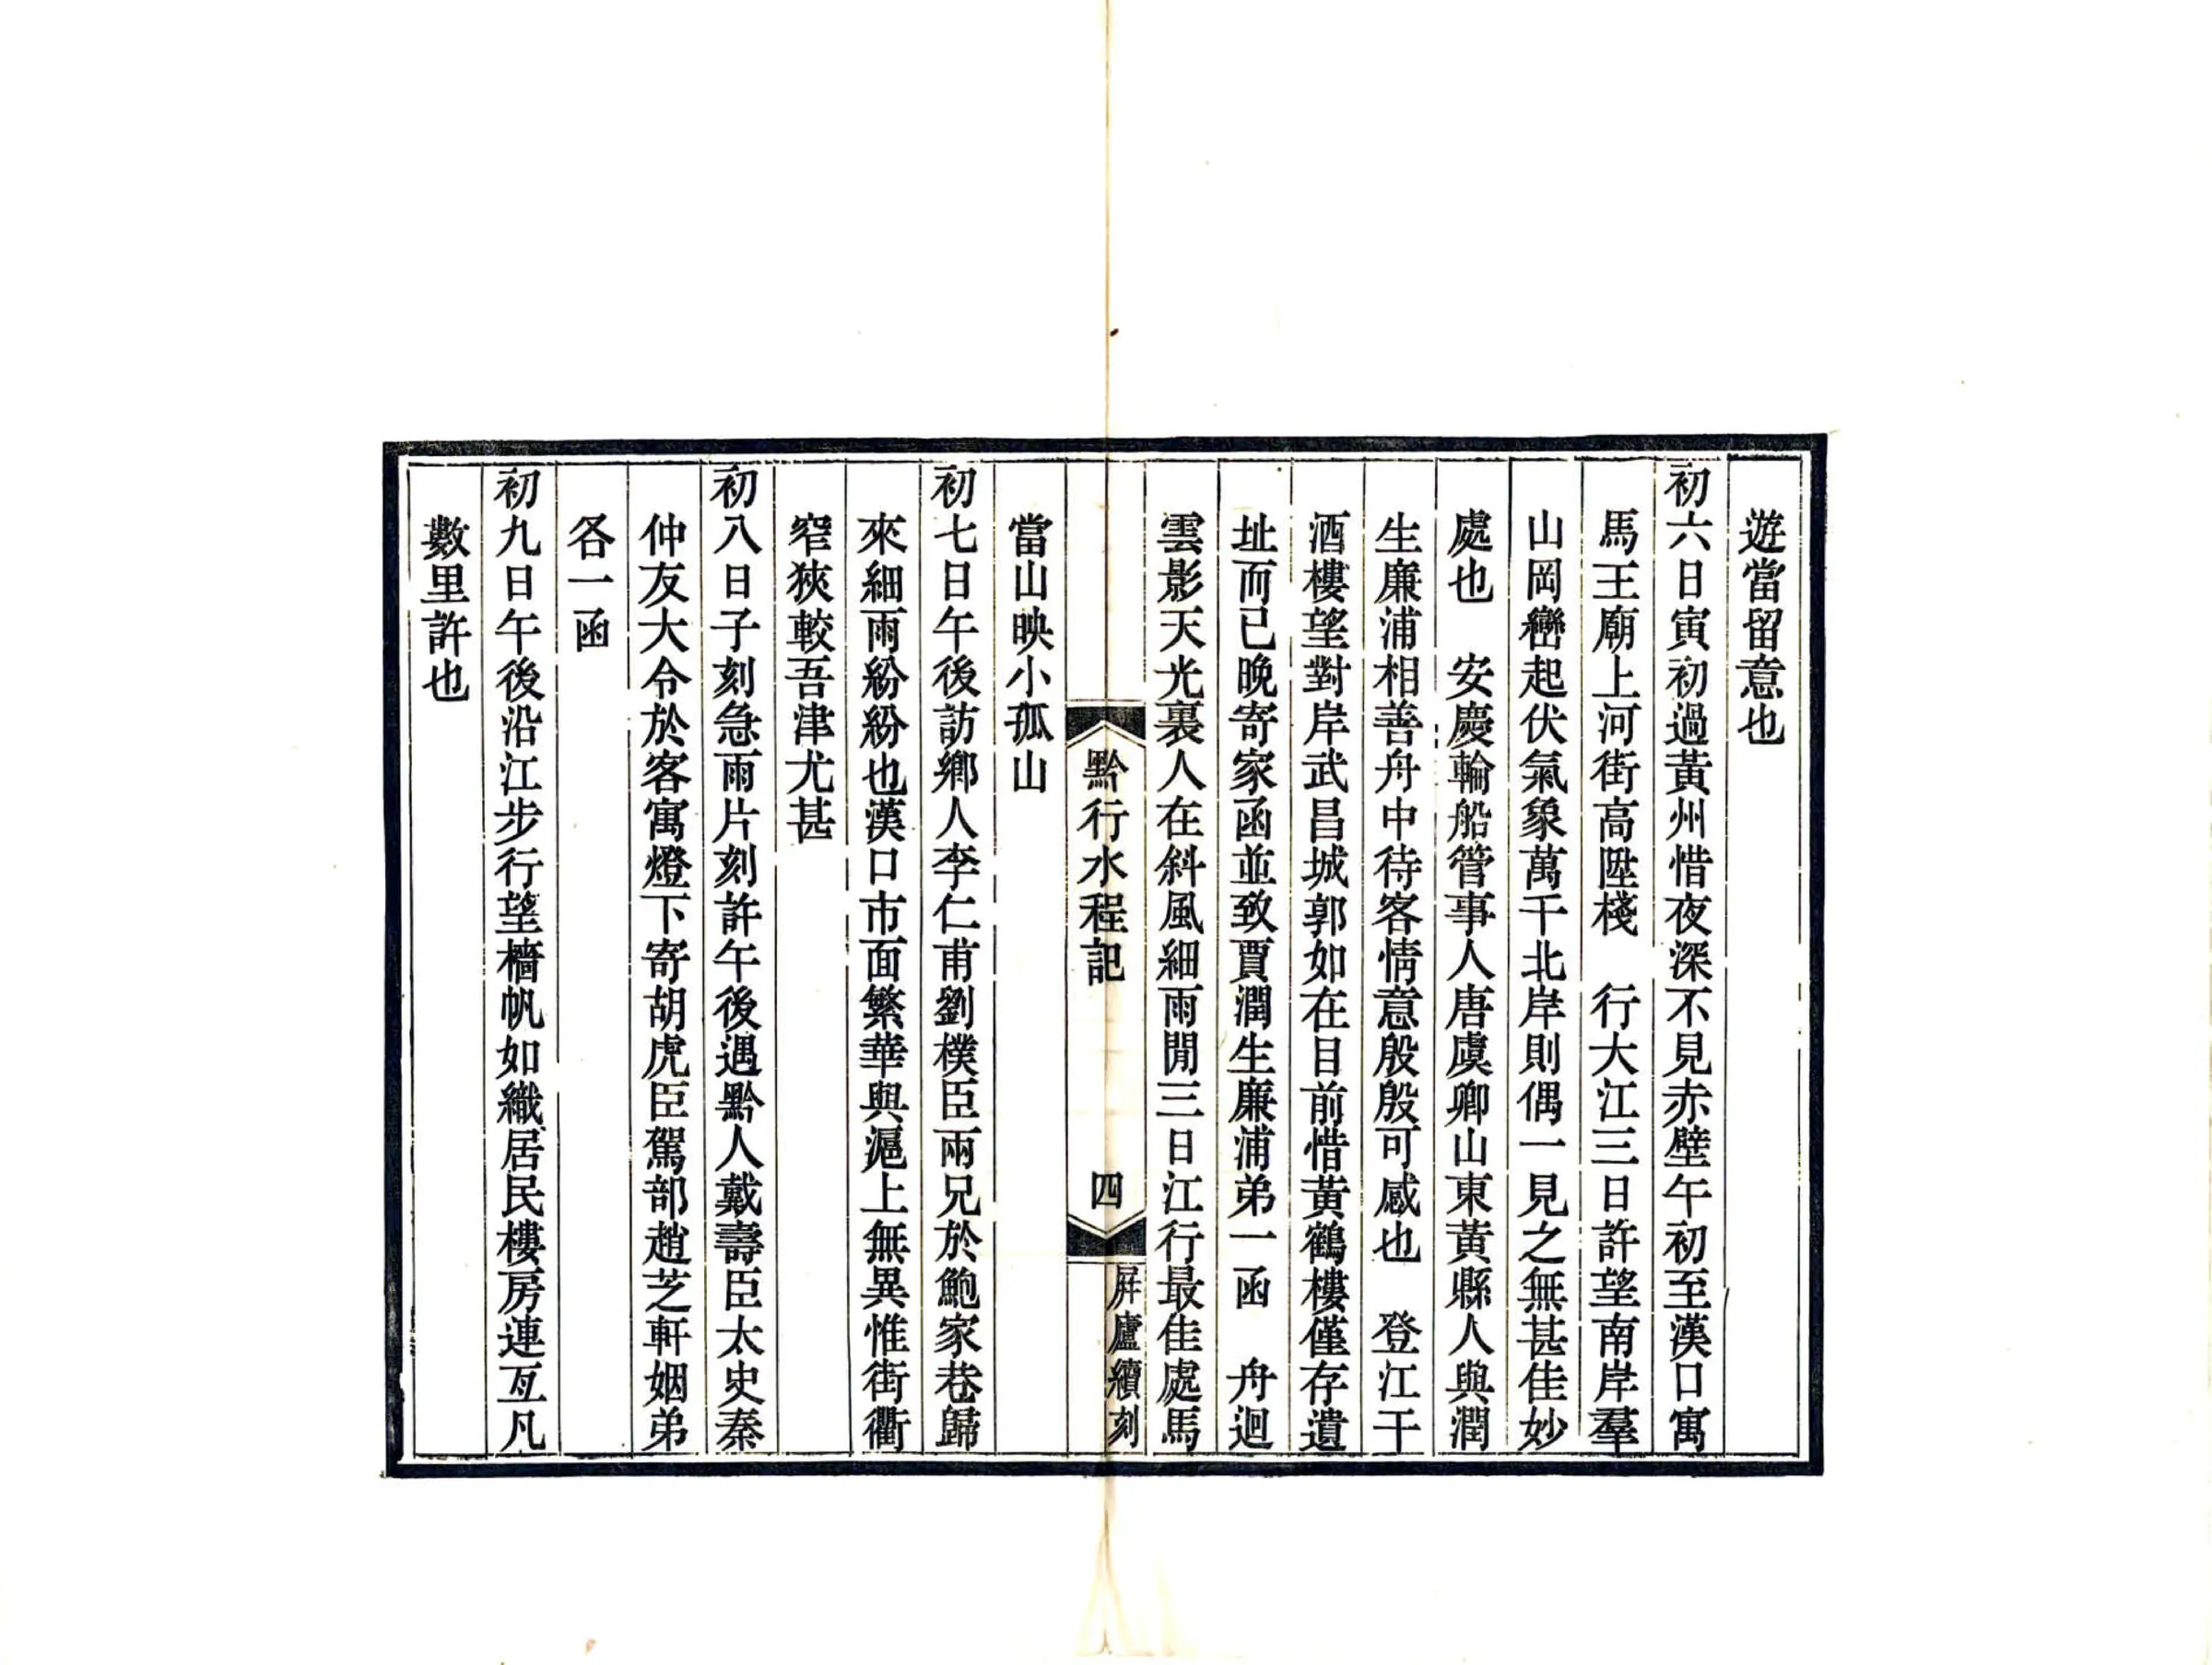 遊當留意也
初六日寅初過黃州惜夜深不見赤壁午初至漢口寓
馬王廟上河街高陞棧　行大江三日許望南岸羣
山岡巒起伏氣象萬千北岸則偶一見之無甚佳妙
處也　安慶輪船管事人唐虞卿山東黃縣人與潤
生廉浦相善舟中待客情意殷殷可感也　登江干
酒樓望對岸武昌城郭如在目前惜黃鶴樓僅存遺
址而已晚寄家函並致賈潤生廉浦弟一函　舟迴
雲影天光裏人在斜風細雨閒三日江行最佳處馬
黔行水程記　四　屛廬續刻
當山映小孤山
初七日午後訪鄉人李仁甫劉樸臣兩兄於鮑家巷歸
來細雨紛紛也漢口市面繁華與滬上無異惟街衢
窄狹較吾津尤甚
初八日子刻急雨片刻許午後遇黔人戴壽臣太史秦
仲友大令於客寓燈下寄胡虎臣駕部趙芝軒姻弟
各一函
初九日午後沿江步行望檣帆如織居民樓房連亙凡
數里許也